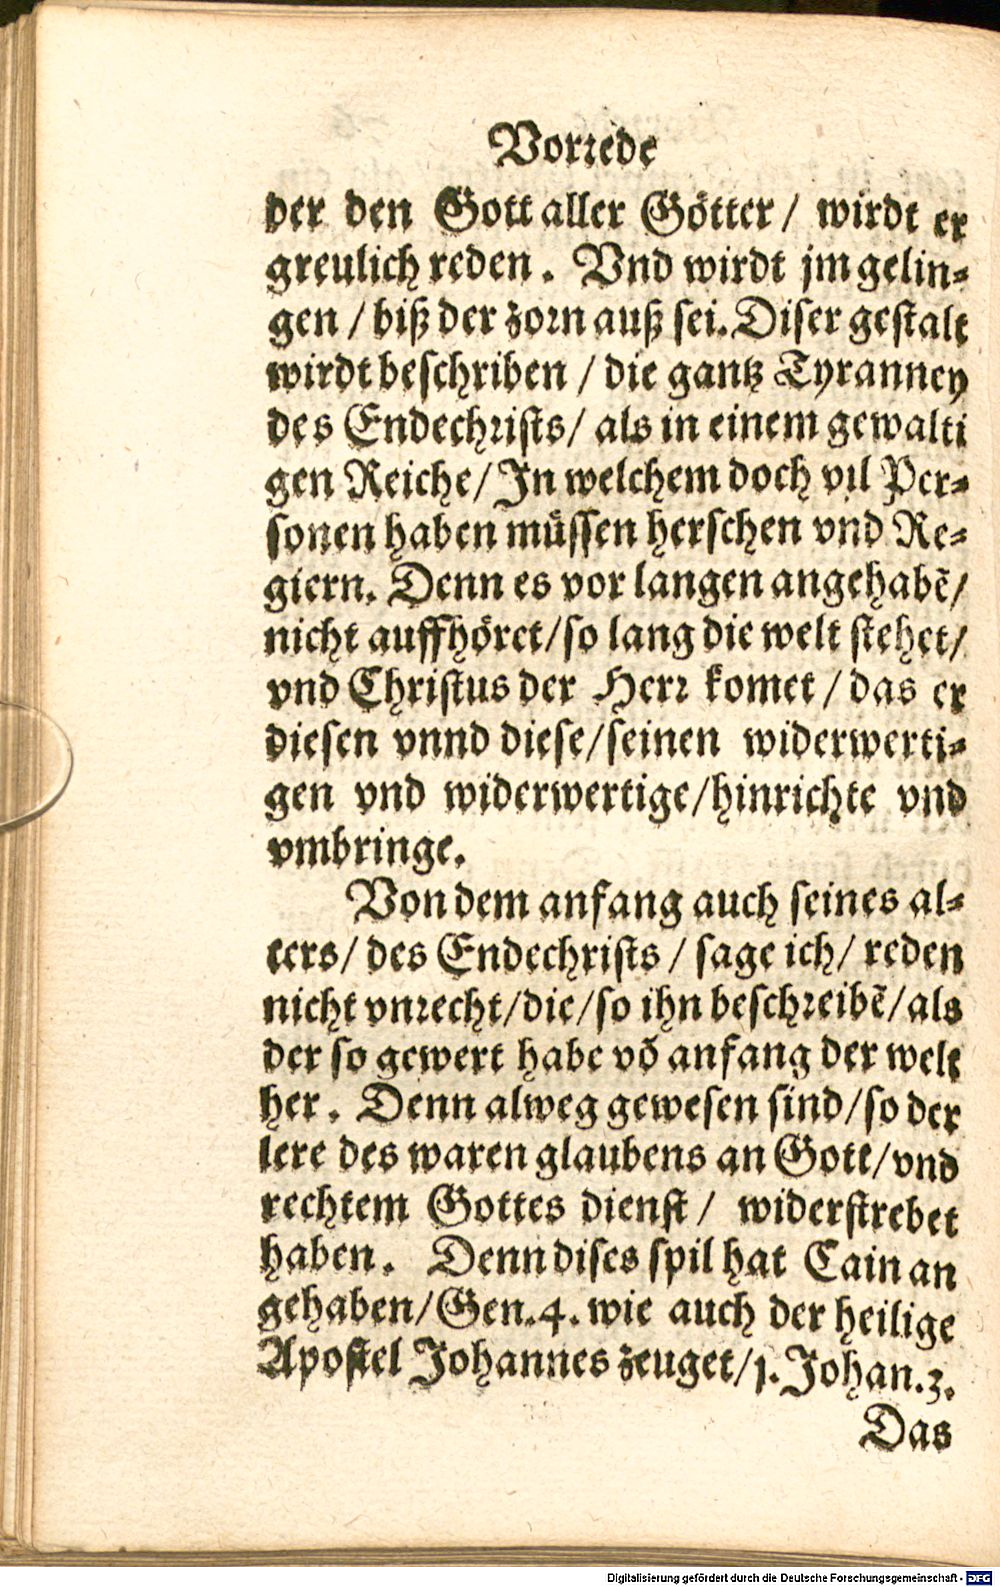 Vorrede
der den Gott aller Götter / wirdt er
greulich reden. Vnd wirdt jm gelin-
gen / biß der zorn auß sei. Diser gestalt
wirdt beschriben / die gantz Tyranney
des Endechrists / als in einem gewalti
gen Reiche / In welchem doch vil Per-
sonen haben müssen herschen vnd Re-
giern. Denn es vor langen angehabẽ /
nicht auffhöret / so lang die welt stehet /
vnd Christus der Herr komet / das er
diesen vnnd diese / seinen widerwerti-
gen vnd widerwertige / hinrichte vnd
vmbringe.
Von dem anfang auch seines al-
ters / des Endechrists / sage ich / reden
nicht vnrecht / die / so ihn beschreibẽ / als
der so gewert habe võ anfang der welt
her. Denn alweg gewesen sind / so der
lere des waren glaubens an Gott / vnd
rechtem Gottes dienst / widerstrebet
haben. Denn dises spil hat Cain an
gehaben / Gen. 4. wie auch der heilige
Apostel Johannes zeuget / 1. Johan. 3.
Das
Digitalisierung gefördert durch die Deutsche Forschungsgemeinschaft - DFG